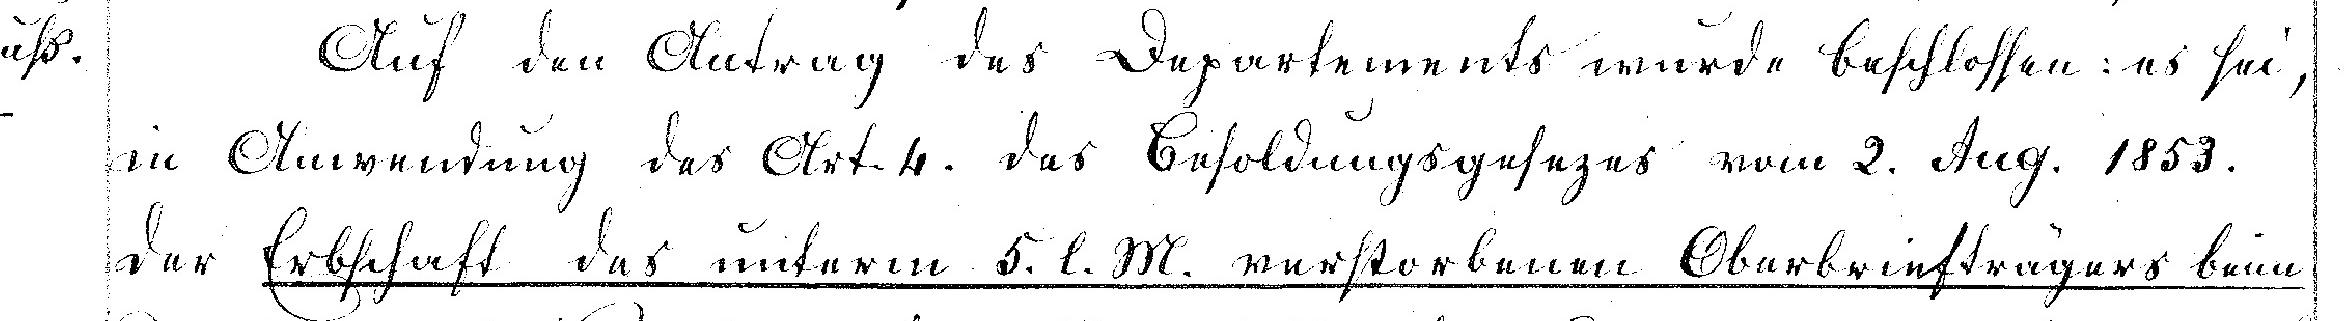 uß.
Auf den Antrag des Departements wurde beschlossen: es sei,
in Anwendung des Art. 4. des Besoldungsgesezes vom 2. Aug. 1853.
der Erbschaft des unterm 5. l. M. verstorbenen Oberbriefträgers beim